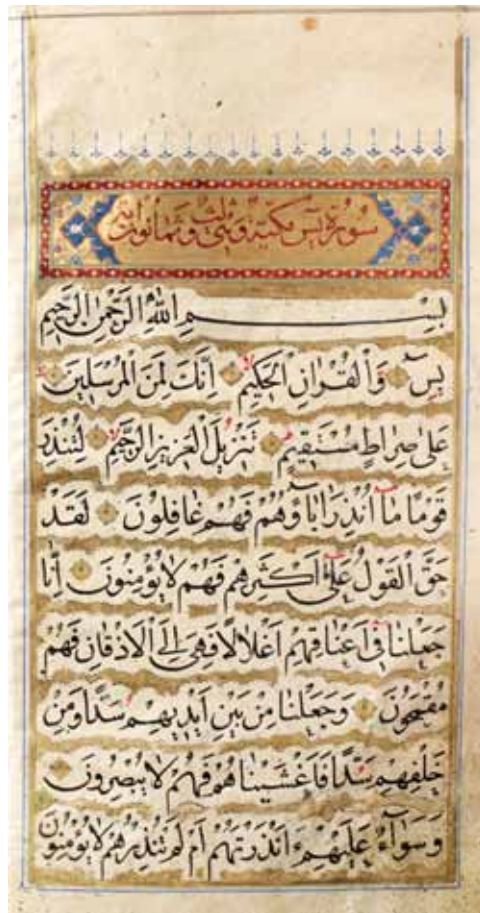 سورة يس مكية وهي ثلث وثمانون اية
بِسْمِ اللّٰهِ الرَّحْمٰنِ الرَّحِيمِ
يٰسٓ وَالْقُرْاٰنِ الْحَكِيمِ اِنَّكَ لَمِنَ الْمُرْسَلِينَ
عَلٰى صِرَاطٍ مُسْتَقِيمٍ تَنْزِيلَ الْعَزِيزِ الرَّحِيمِ لِتُنْذِرَ
قَوْمًا مَآ اُنْذِرَ اٰبَآؤُهُمْ فَهُمْ غَافِلُونَ لَقَدْ
حَقَّ الْقَوْلُ عَلٰٓى اَكْثَرِهِمْ فَهُمْ لَا يُؤْمِنُونَ اِنَّا
جَعَلْنَا فِٓى اَعْنَاقِهِمْ اَغْلَالًا فَهِىَ اِلَى الْاَذْقَانِ فَهُمْ
مُقْمَحُونَ وَجَعَلْنَا مِنْ بَيْنِ اَيْدِيهِمْ سَدًّا وَمِنْ
خَلْفِهِمْ سَدًّا فَاَغْشَيْنَاهُمْ فَهُمْ لَا يُبْصِرُونَ
وَسَوَآءٌ عَلَيْهِمْ ءَاَنْذَرْتَهُمْ اَمْ لَمْ تُنْذِرْهُمْ لَا يُؤْمِنُونَ